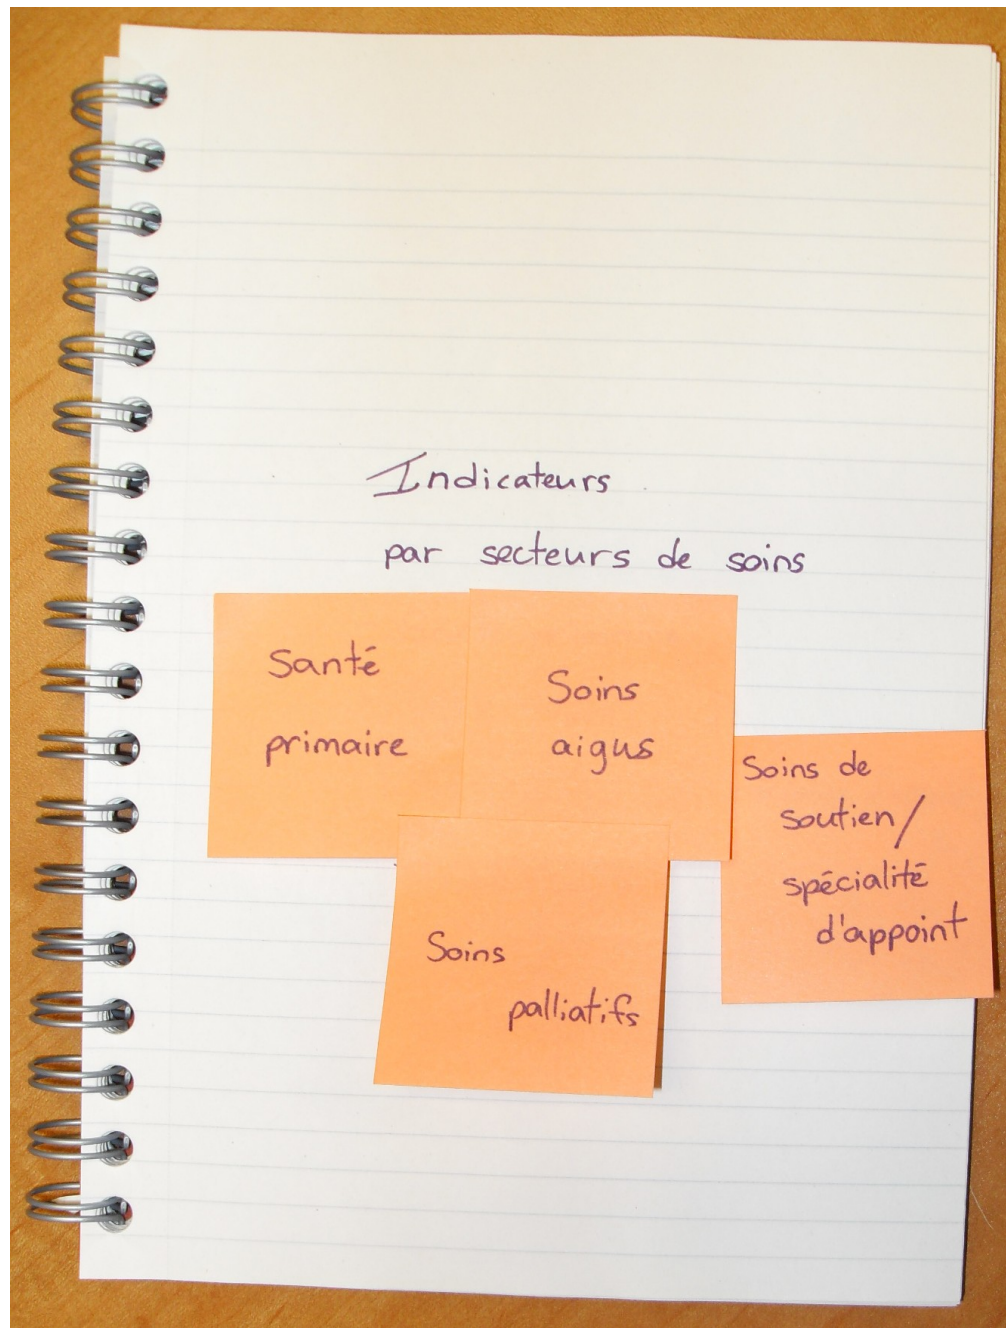 Indicateurs
par secteurs de soins
Santé
primaire
Soins
aigus
Soins de
soutien/
spécialité
d'appoint
Soins
palliatifs